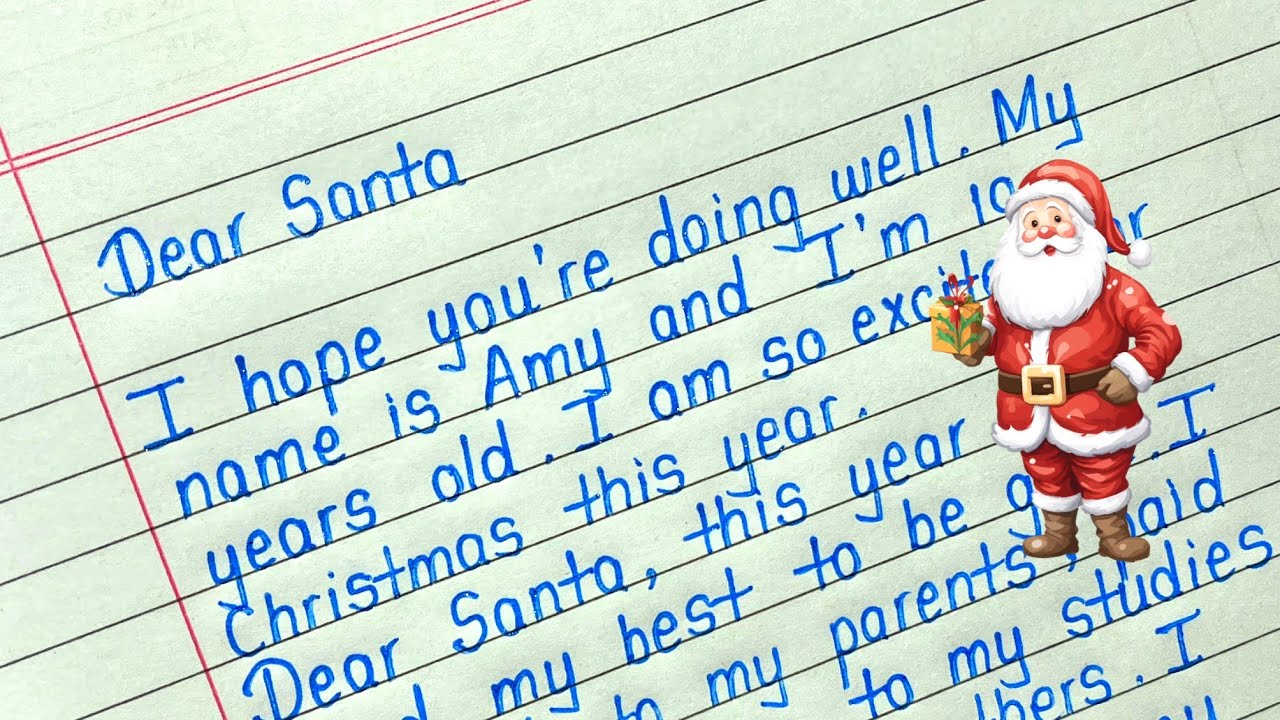 Dear Santa
I hope you're doing well. My
name is Amy and I'm 10
years old. I am so excited for
Christmas this year.
Dear Santa, this year
my best to be
to my parents, paid
to my studies
I